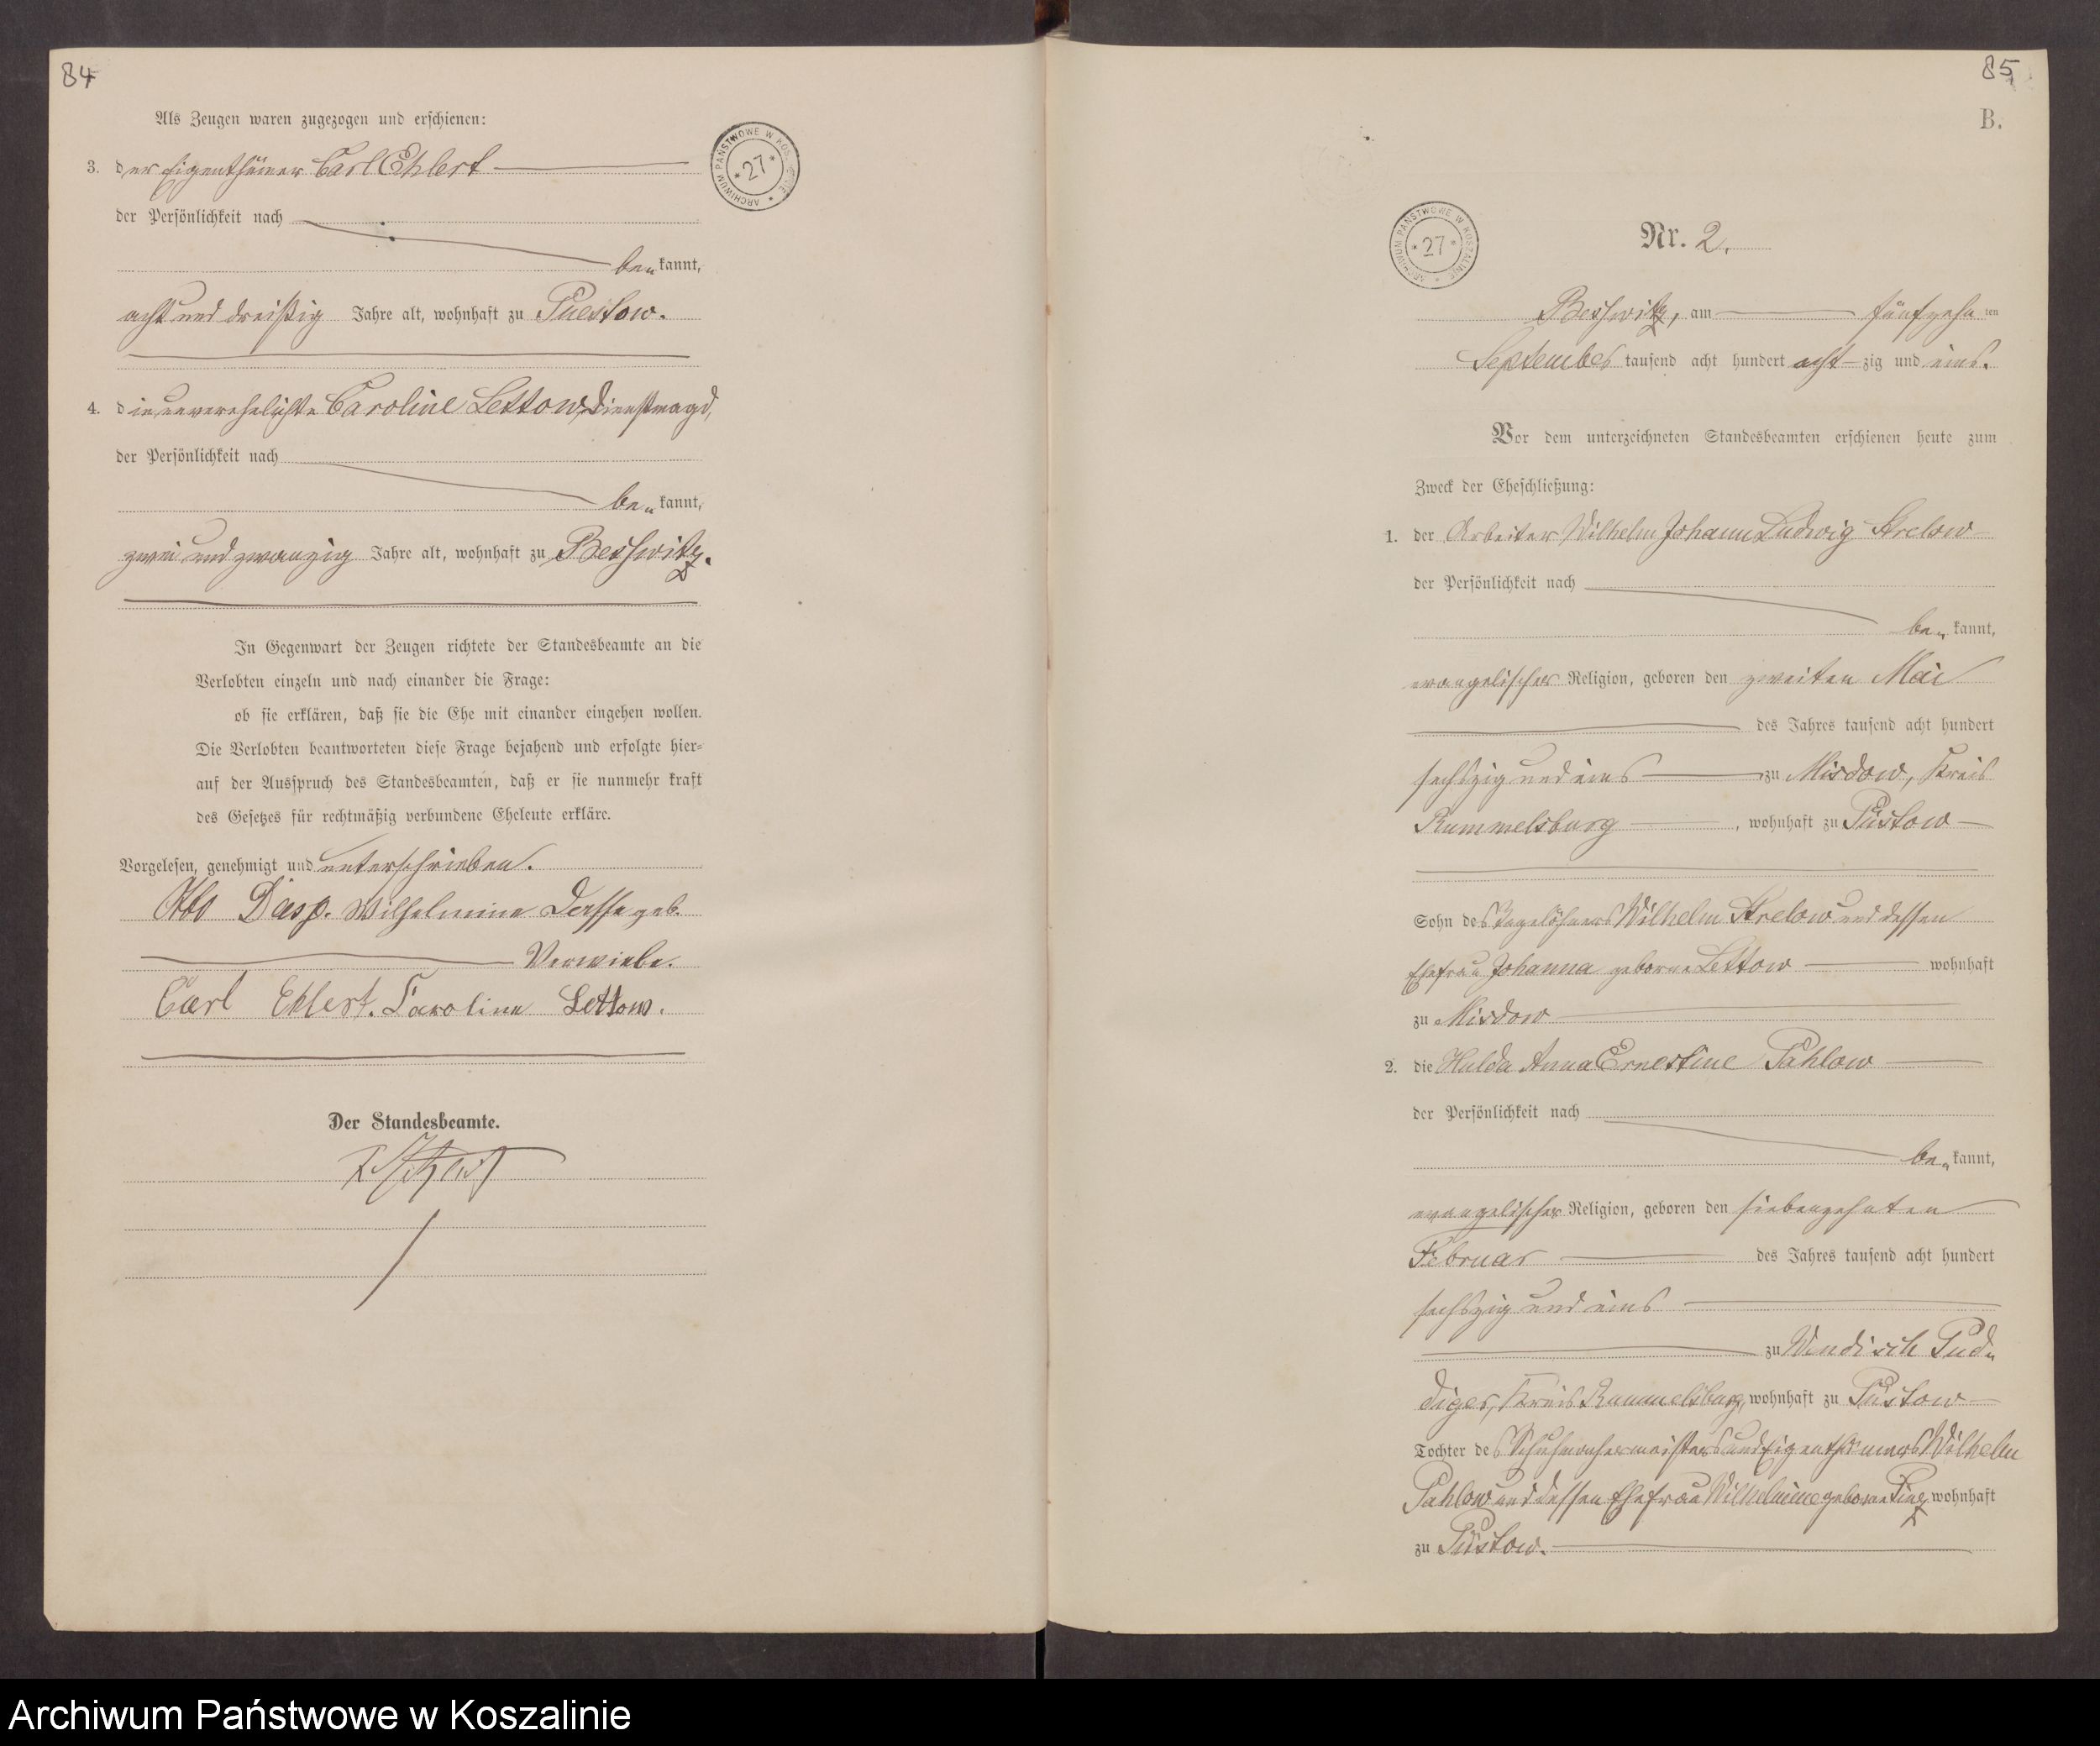 84
Als Zeugen waren zugezogen und erschienen:
3. der Eigenthümer Carl Ehlert
der Persönlichkeit nach
bekannt,
acht und dreißig Jahre alt, wohnhaft zu Puestow.
4. die unverehelichte Caroline Lettow, Dienstmagd,
der Persönlichkeit nach
bekannt,
zwei und zwanzig Jahre alt, wohnhaft zu Beßwitz.
In Gegenwart der Zeugen richtete der Standesbeamte an die
Verlobten einzeln und nach einander die Frage:
ob sie erklären, daß sie die Ehe mit einander eingehen wollen.
Die Verlobten beantworteten diese Frage bejahend und erfolgte hier=
auf der Ausspruch des Standesbeamten, daß er sie nunmehr kraft
des Gesetzes für rechtmäßig verbundene Eheleute erkläre.
Vorgelesen, genehmigt und unterschrieben.
Otto Wilhelmine geb.
Verwiebe.
Carl Ehlert. Caroline Lettow.
Der Standesbeamte.
ARCHIWUM PAŃSTWOWE W KOSZALINIE * 27 *
85
B.
ARCHIWUM PAŃSTWOWE W KOSZALINIE * 27 *
Nr. 2.
Beßwitz, am fünfzehnten
September tausend acht hundert achtzig und eins.
Vor dem unterzeichneten Standesbeamten erschienen heute zum
Zweck der Eheschließung:
1. der Arbeiter Wilhelm Johann Ludwig Strelow
der Persönlichkeit nach
bekannt,
evangelischer Religion, geboren den zweiten Mai
des Jahres tausend acht hundert
sechszig und eins zu Misdow, Kreis
Rummelsburg, wohnhaft zu Püstow
Sohn des Tagelöhners Wilhelm Strelow und dessen
Ehefrau Johanna geborne Lettow wohnhaft
zu Misdow
2. die Hulda Anna Ernestine Pahlow
der Persönlichkeit nach
bekannt,
evangelischer Religion, geboren den siebenzehnten
Februar des Jahres tausend acht hundert
sechszig und eins
zu Wendisch Pud=
diger, Kreis Rummelsburg, wohnhaft zu Püstow
Tochter des Schuhmachermeisters und Eigenthümers Wilhelm
Pahlow und dessen Ehefrau Wilhelmine geborne wohnhaft
zu Püstow.
Archiwum Państwowe w Koszalinie